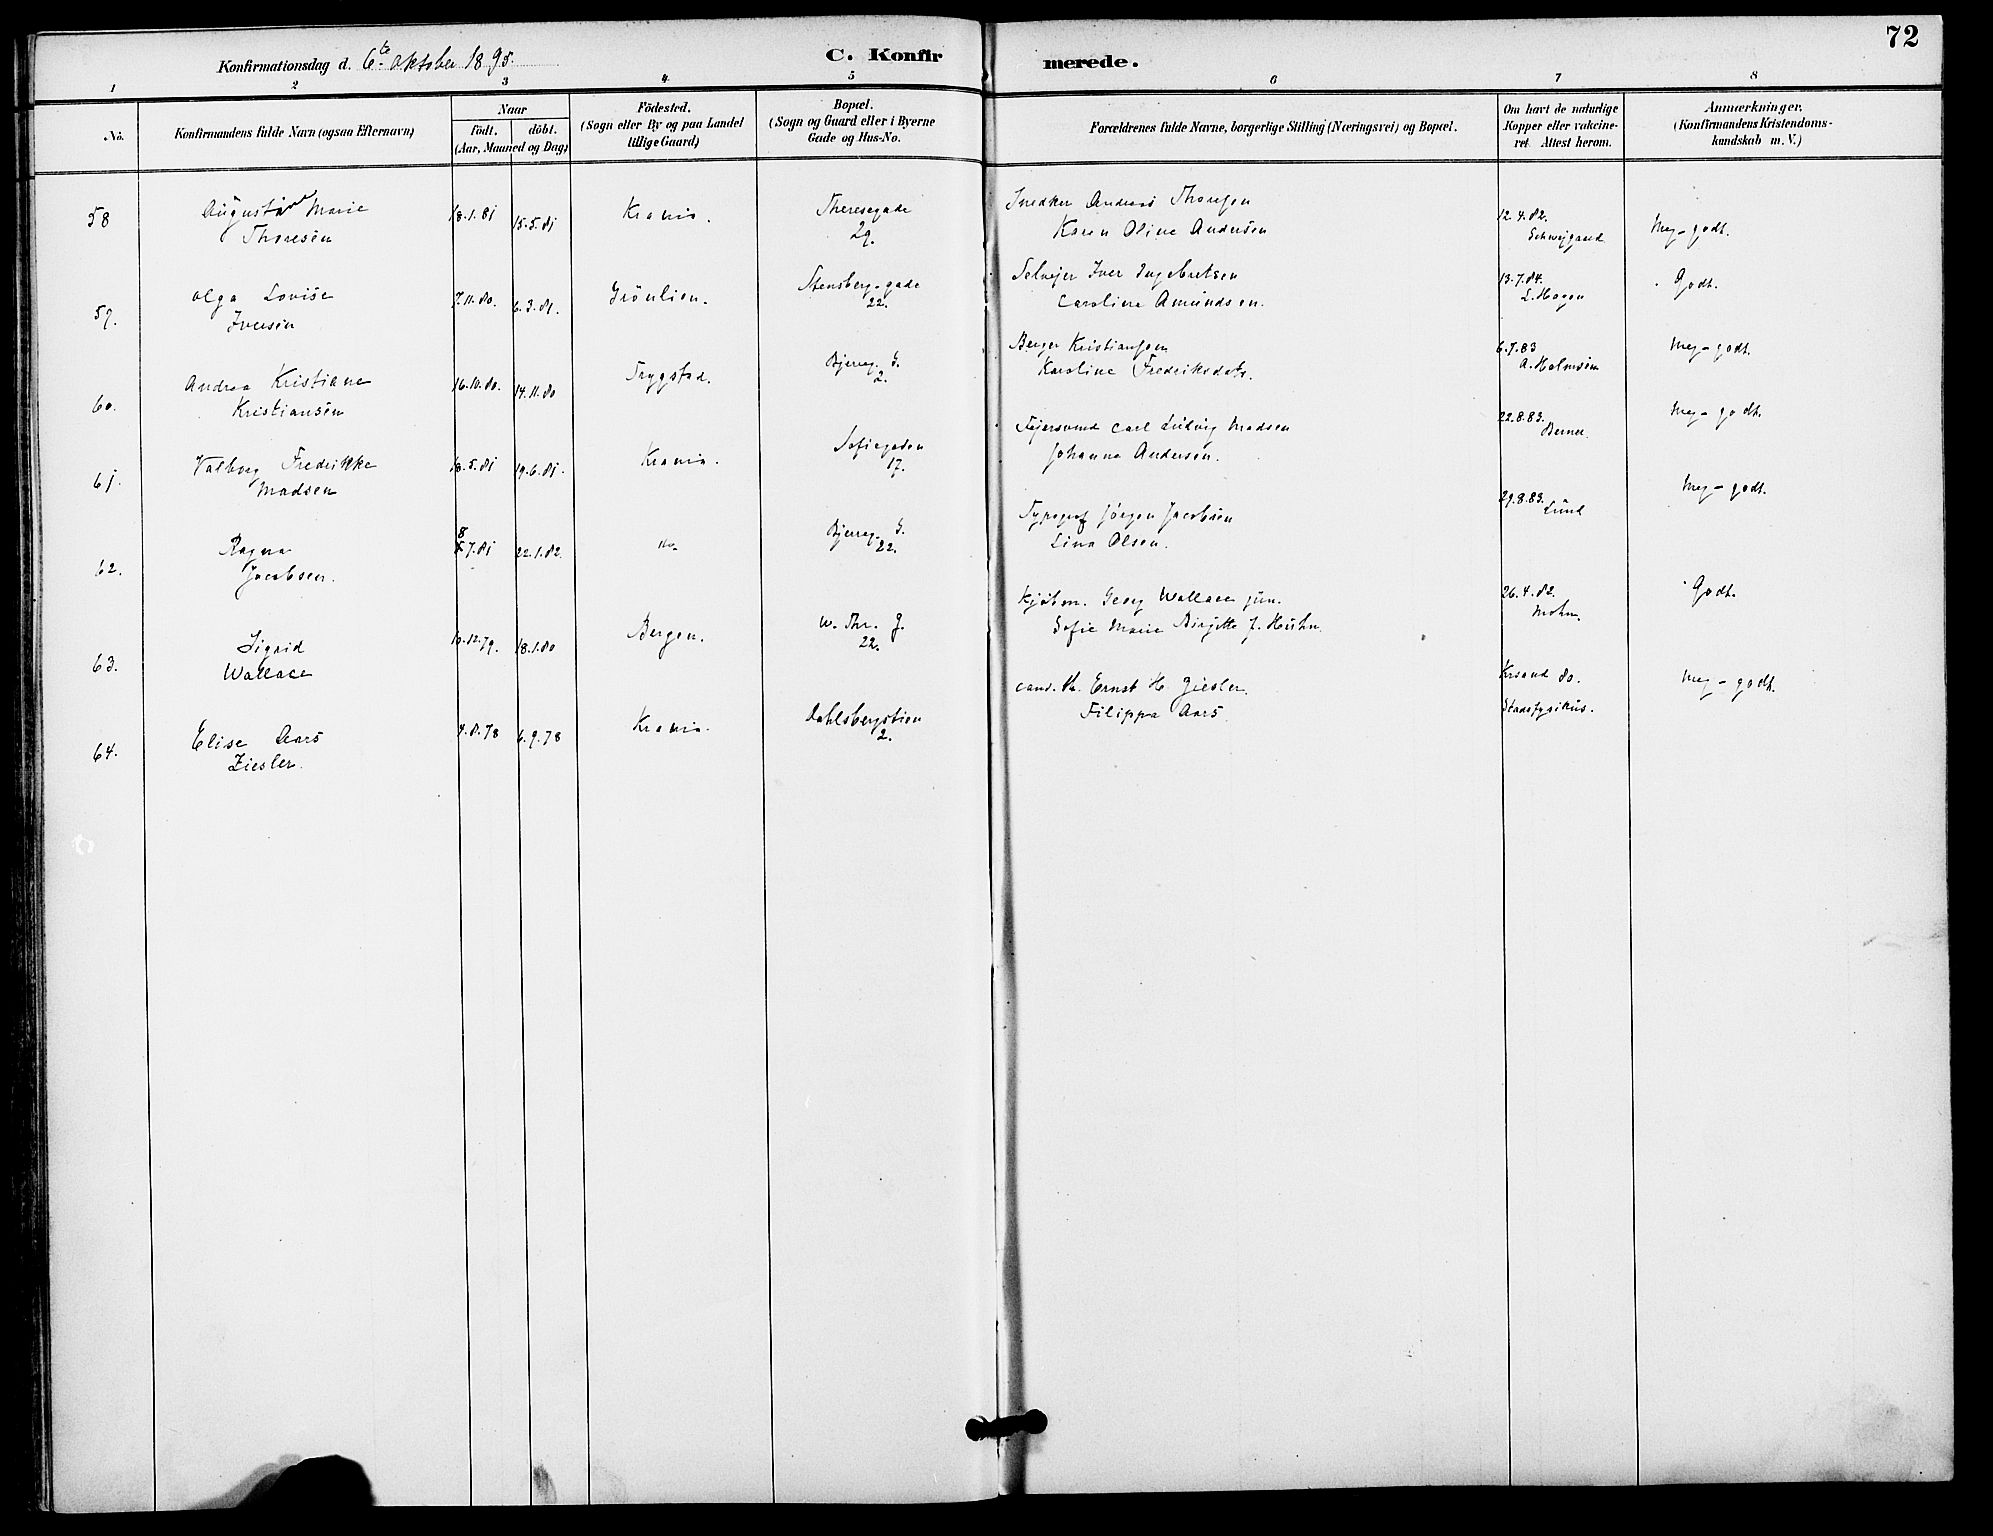 72
Konfirmationsdag d. 6te oktober 1895.
C. Konfirmerede.
1 2 3 4 5 6 7 8
No.
Konfirmandens fulde Navn (ogsaa Efternavn)
Naar
født. døbt.
(Aar, Maaned og Dag)
Födested.
(Sogn eller By og paa Landet
tillige Gaard)
Bopæl.
(Sogn og Gaard eller i Byerne
Gade og Hus-No.
Forældrenes fulde Navne, borgerlige Stilling (Næringsvei) og Bopæl.
Om havt de naturlige
Kopper eller vakcine-
ret. Attest herom.
Anmærkninger.
(Konfirmandens Kristendoms-
kundskab m. V.)
58 Augusta Marie
Thoresen
18.1.81 15.5.81 Krania. Theresegade
29.
Snedker Andreas Thoresen
Karen Oline Andersen
12.4.82.
Schweigaard
Meg-godt.
59. Olga Lovise
Iversen
7.11.80. 6.3.81. Grönlien. Stensberg-gade
22.
Selvejer Iver Ingebretsen
Caroline Amundsen.
13.7.84.
L. Hagen
Godt.
60. Andrea Kristiane
Kristiansen
16.10.80. 14.11.80 Trygstad. Bjerreg. G.
2.
Berger Kristiansen
Karoline Fredriksdatr.
6.7.83
A. Holmsen
Meg-godt.
61. Valborg Fredrikke
Madsen
18.5.81 19.6.81. Krania. Sofiegaden
17.
Fejersvend Carl Ludvig Madsen
Johanne Andersen.
22.8.83.
Berner.
Meg-godt.
62. Ragna
Jacobsen.
8
7.81 22.1.82. Bjerreg. G.
22.
Typograf Jörgen Jacobsen
Lina Olsen.
29.8.83.
Lund
Meg-godt.
63. Sigrid
Wallace
10.12.79. 18.1.80 Bergen. W. Thr. G.
22.
Kjöbm. Georg Wallace jun.
Sofie Marie Birgitte J. Huhn.
26.4.82.
Mohn.
Godt.
64. Elise Aars
Ziesler.
4.8.78 6.9.78 Krania. Dahlsbergstien
2.
cand. th. Ernst H. Ziesler.
Filippa Aars.
Krsand 80.
Stadsfysikus.
Meg-godt.